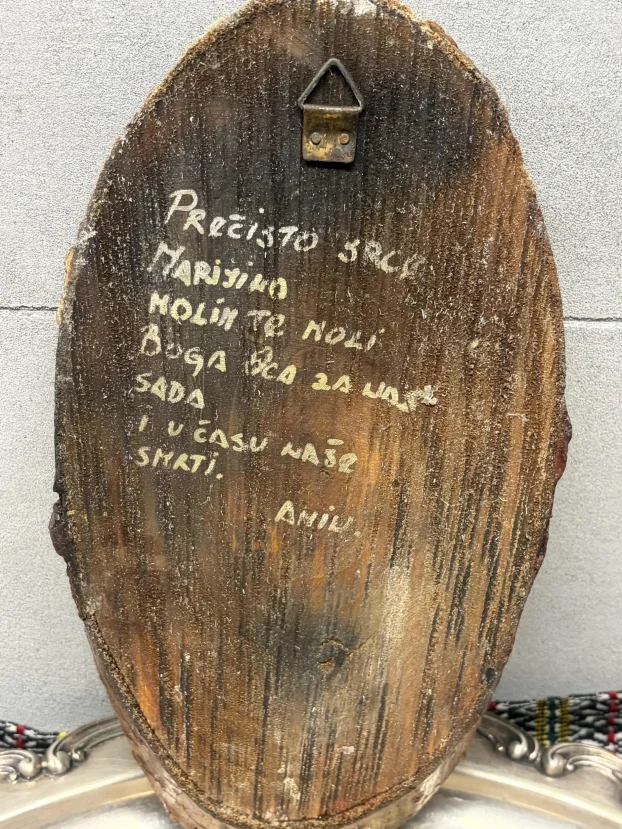 PREČISTO SRCE
MARIJINO
MOLIM TE MOLI
BOGA OCA ZA NAS
SADA
I U ČASU NAŠE
SMRTI.
AMIN.